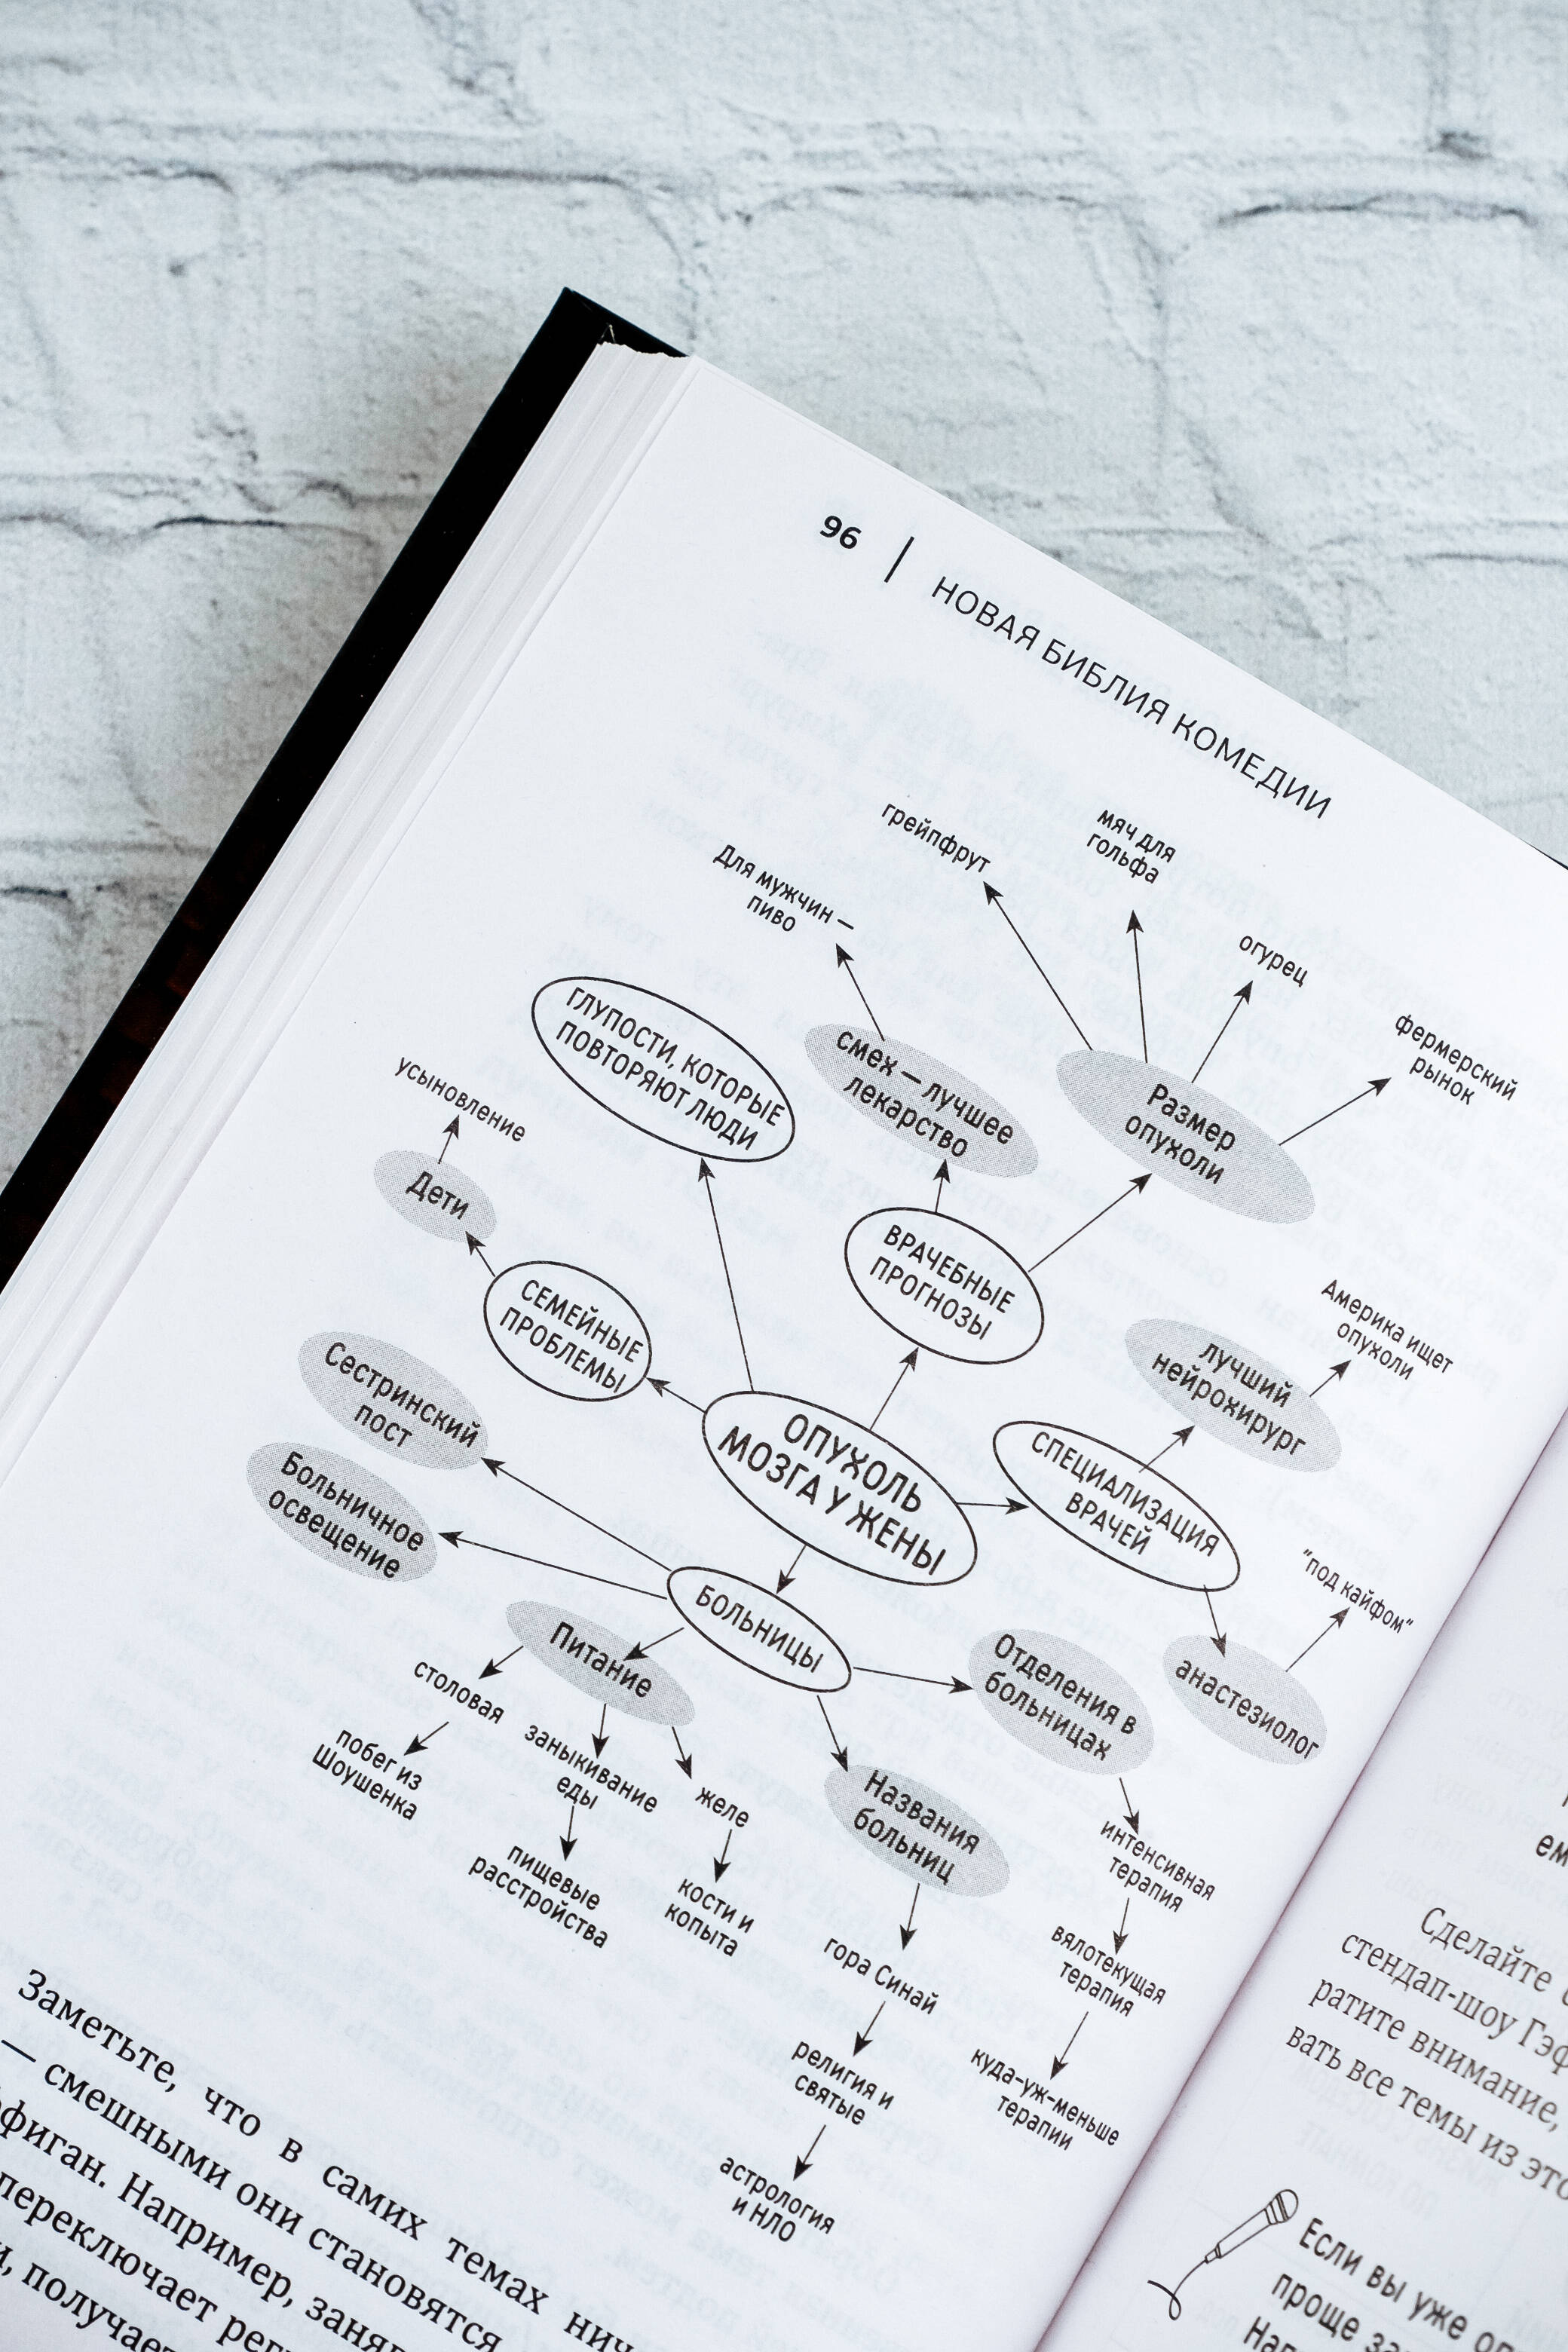 96 | НОВАЯ БИБЛИЯ КОМЕДИИ
грейпфрут
мяч для
гольфа
Для мужчин —
пиво
огурец
фермерский
рынок
ГЛУПОСТИ, КОТОРЫЕ
ПОВТОРЯЮТ ЛЮДИ
смех — лучшее
лекарство
Размер
опухоли
усыновление
Дети
ВРАЧЕБНЫЕ
ПРОГНОЗЫ
СЕМЕЙНЫЕ
ПРОБЛЕМЫ
Америка ищет
опухоли
лучший
нейрохирург
Сестринский
пост
ОПУХОЛЬ
МОЗГА У ЖЕНЫ
СПЕЦИАЛИЗАЦИЯ
ВРАЧЕЙ
Больничное
освещение
"под кайфом"
БОЛЬНИЦЫ
Питание
Отделения в
больницах
анастезиолог
столовая
побег из
Шоушенка
заныкивание
еды
желе
Названия
больниц
пищевые
расстройства
кости и
копыта
интенсивная
терапия
гора Синай
вялотекущая
терапия
религия и
святые
куда-уж-меньше
терапии
астрология
и НЛО
Заметьте, что в самих темах нич
— смешными они становятся
фиган. Например, заня
переключает рег
и, получает
ем
Сделайте
стендап-шоу Гэф
ратите внимание,
вать все темы из это
Если вы уже оп
проще за
Нап